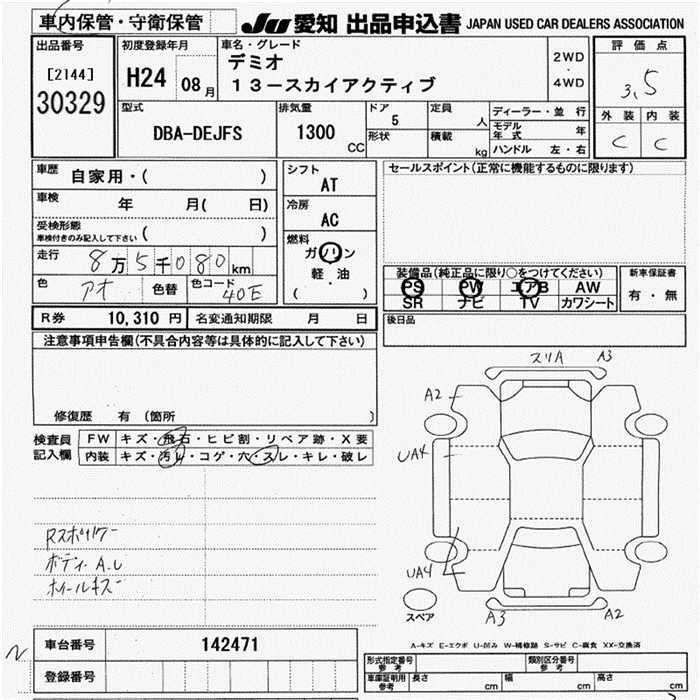 車内保管・守衛保管
JU 愛知 出品申込書 JAPAN USED CAR DEALERS ASSOCIATION
出品番号
[2144]
30329
初度登録年月
H24 08月
車名・グレード
デミオ
13-スカイアクティブ
2WD
・
4WD
評価点
3.5
外装 内装
C C
型式
DBA-DEJFS
排気量
1300
CC
ドア
5
形状
定員
人
積載
kg
ディーラー・並行
モデル年式 年
ハンドル 左・右
車歴
自家用・( )
車検
年 月( 日)
受検形態
車検付きのみ記入して下さい ( )
走行
8万5千080km
色
アオ
色替
色コード
40E
シフト
AT
冷房
AC
燃料
ガソリン
軽・油
( )
セールスポイント(正常に機能するものに限ります)
装備品(純正品に限り○をつけてください)
PS PW エアB AW
SR ナビ TV カワシート
新車保証書
有・無
R券 10,310円 名変通知期限 月 日
後日品
注意事項申告欄(不具合内容等は具体的に記入して下さい)
修復歴 有 (箇所 )
検査員記入欄
FW キズ・飛石・ヒビ割・リペア跡・X要
内装 キズ・汚れ・コゲ・穴・スレ・キレ・破レ
スリA A3
A2
UA4
UA4
A3 A2
スペア
Rスポイラー
ボディA.U
ホイールキズ
A-キズ E-エクボ U-凹み W-補修跡 S-サビ C-腐食 XX-交換済
車台番号 142471
登録番号
型式指定番号
参考
類別区分番号
参考
車庫証明用
参考
長さ cm 幅 cm 高さ cm